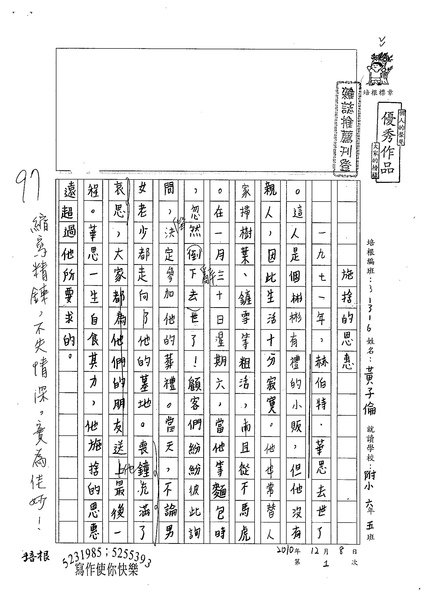 培根標章
個人的榮譽
優秀作品
雜誌推薦刊登
培根編班：31316 姓名：黃子倫 就讀學校：附小 六年五班
2010年 12月 8日
第 1 次
施捨的恩惠
一九七一年，赫伯特．華思去世了
。這人是個彬彬有禮的小販，但他沒有
親人，因此生活十分寂寞。他也常替人
家掃樹葉、鏟雪等粗活，而且從不馬虎
。在一月三十日星期六，當他等麵包時
，忽然倒下去世了！顧客們紛紛彼此詢
問，決定參加他的葬禮。當天，不論男
女老少都走向他的墓地。喪鐘充滿了
哀思，大家都為他們的朋友送上最後一
程。華思一生自食其力，他施捨的恩惠
遠超過他所要求的。
97
縮寫精鍊，不失情深，實為佳妙！
培根
5231985；5255393
寫作使你快樂